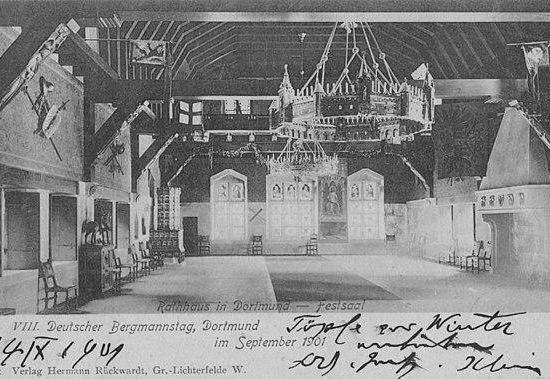 Rathhaus in Dortmund — Festsaal
VIII. Deutscher Bergmannstag, Dortmund
im September 1901
Winter
14/IX 1901
Verlag Hermann Rückwardt, Gr.-Lichterfelde W.